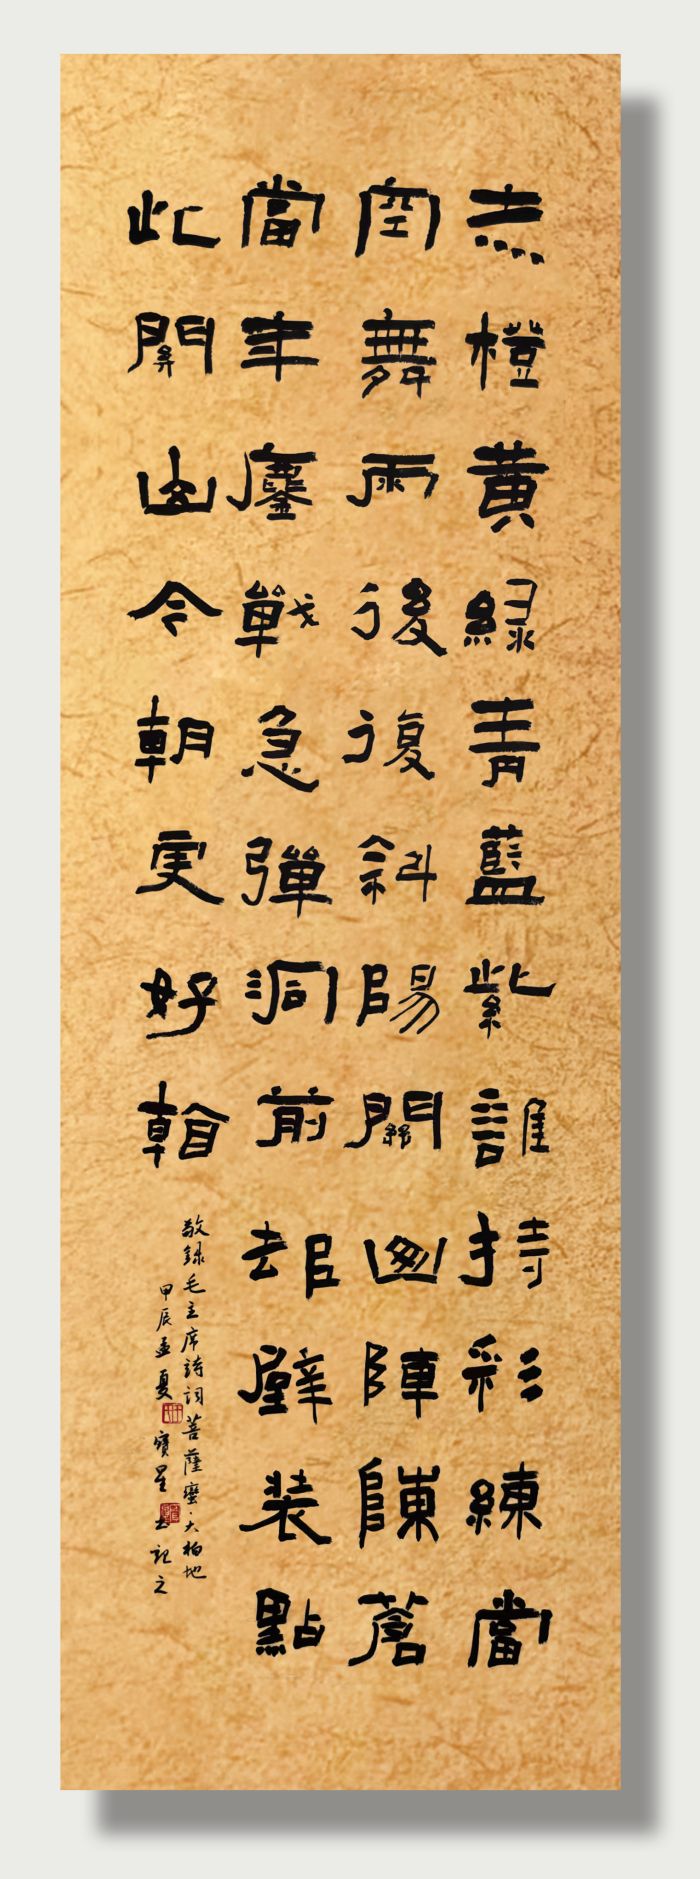 赤橙黄緑青藍紫誰持彩練當
空舞雨後復斜陽關山陣陣蒼
當年鏖戰急彈洞前邨壁装點
此關山今朝更好看
敬録毛主席詩詞菩薩蠻·大柏地
甲辰孟夏寶星書記之